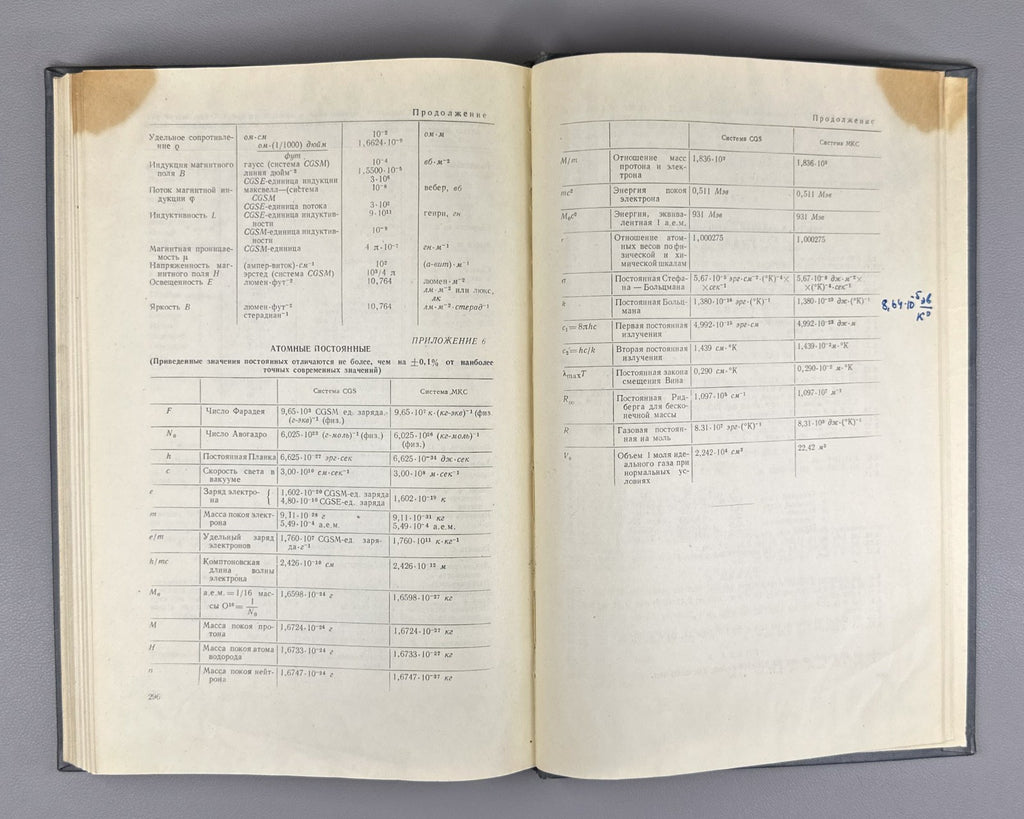 Продолжение
Удельное сопротивле-
ние ϱ
ом·см
ом·(1/1000) дюйм
фут
10⁻²
1,6624·10⁻⁹
ом·м
Индукция магнитного
поля B
гаусс (система CGSM)
линия дюйм⁻²
CGSE-единица индукции
10⁻⁴
1,5500·10⁻⁵
3·10⁶
вб·м⁻²
Поток магнитной ин-
дукции φ
максвелл—(система
CGSM)
CGSE-единица потока
10⁻⁸
3·10²
вебер, вб
Индуктивность L
CGSE-единица индуктив-
ности
CGSM-единица индуктив-
ности
9·10¹¹
10⁻⁹
генри, гн
Магнитная проницае-
мость μ
CGSM-единица
4 π·10⁻⁷
гн·м⁻¹
Напряженность маг-
нитного поля H
(ампер-виток)·см⁻¹
эрстед (система CGSM)
10²
10³/4 π
(а-вит)·м⁻¹
Освещенность E
люмен·фут⁻²
10,764
люмен·м⁻²
лм·м⁻² или люкс,
лк
Яркость B
люмен·фут⁻²
стерадиан⁻¹
10,764
лм·м⁻²·стерад⁻¹
ПРИЛОЖЕНИЕ 6
АТОМНЫЕ ПОСТОЯННЫЕ
(Приведенные значения постоянных отличаются не более, чем на ±0,1% от наиболее
точных современных значений)
Система CGS
Система МКС
F
Число Фарадея
9,65·10³ CGSM ед. заряда·
(г-экв)⁻¹ (физ.)
9,65·10⁷ к·(кг-экв)⁻¹ (физ.)
N₀
Число Авогадро
6,025·10²³ (г-моль)⁻¹ (физ.)
6,025·10²⁶ (кг-моль)⁻¹
(физ.)
h
Постоянная Планка
6,625·10⁻²⁷ эрг·сек
6,625·10⁻³⁴ дж·сек
c
Скорость света в
вакууме
3,00·10¹⁰ см·сек⁻¹
3,00·10⁸ м·сек⁻¹
e
Заряд электро-
на
1,602·10⁻²⁰ CGSM-ед. заряда
4,80·10⁻¹⁰ CGSE-ед. заряда
1,602·10⁻¹⁹ к
m
Масса покоя элект-
рона
9,11·10⁻²⁸ г
5,49·10⁻⁴ а.е.м.
9,11·10⁻³¹ кг
5,49·10⁻⁴ а.е.м.
e/m
Удельный заряд
электронов
1,760·10⁷ CGSM-ед. заря-
да·г⁻¹
1,760·10¹¹ к·кг⁻¹
h/mc
Комптоновская
длина волны
электрона
2,426·10⁻¹⁰ см
2,426·10⁻¹² м
M₀
а.е.м. = 1/16 мас-
сы O¹⁶ = 1/N₀
1,6598·10⁻²⁴ г
1,6598·10⁻²⁷ кг
M
Масса покоя про-
тона
1,6724·10⁻²⁴ г
1,6724·10⁻²⁷ кг
H
Масса покоя атома
водорода
1,6733·10⁻²⁴ г
1,6733·10⁻²⁷ кг
n
Масса покоя нейт-
рона
1,6747·10⁻²⁴ г
1,6747·10⁻²⁷ кг
296
Продолжение
Система CGS
Система МКС
M/m
Отношение масс
протона и элек-
трона
1,836·10³
1,836·10³
mc²
Энергия покоя
электрона
0,511 Мэв
0,511 Мэв
M₀c²
Энергия, эквива-
лентная 1 а.е.м.
931 Мэв
931 Мэв
r
Отношение атом-
ных весов по фи-
зической и хи-
мической шкалам
1,000275
1,000275
σ
Постоянная Стефа-
на — Больцмана
5,67·10⁻⁵ эрг·см⁻²·(°К)⁻⁴×
×сек⁻¹
5,67·10⁻⁸ дж·м⁻²×
×(°К)⁻⁴·сек⁻¹
k
Постоянная Больц-
мана
1,380·10⁻¹⁶ эрг·(°К)⁻¹
1,380·10⁻²³ дж·(°К)⁻¹
8,64·10⁻⁵ эв
К°
c₁ = 8πhc
Первая постоянная
излучения
4,992·10⁻¹⁵ эрг·см
4,992·10⁻²⁴ дж·м
c₂ = hc/k
Вторая постоянная
излучения
1,439 см·°К
1,439·10⁻² м·°К
λmaxT
Постоянная закона
смещения Вина
0,290 см·°К
0,290·10⁻² м·°К
R∞
Постоянная Рид-
берга для беско-
нечной массы
1,097·10⁵ см⁻¹
1,097·10⁷ м⁻¹
R
Газовая постоян-
ная на моль
8,31·10⁷ эрг·(°К)⁻¹
8,31·10³ дж·(°К)⁻¹
V₀
Объем 1 моля иде-
ального газа при
нормальных ус-
ловиях
2,242·10⁴ см³
22,42 м³